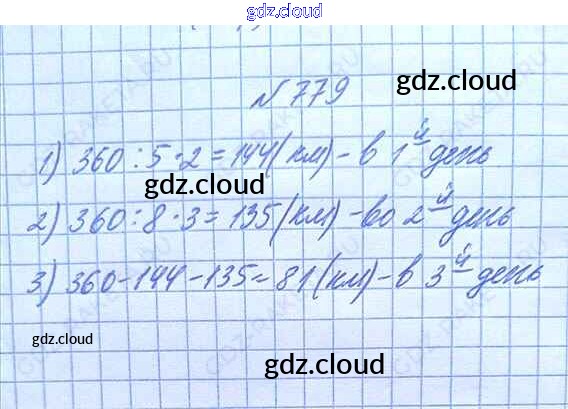 gdz.cloud
№ 779
gdz.cloud
1) 360 : 5 · 2 = 144 (км) - в 1й день
gdz.cloud
2) 360 : 8 · 3 = 135 (км) - во 2й день
3) 360 - 144 - 135 = 81 (км) - в 3й день
gdz.cloud
gdz.cloud